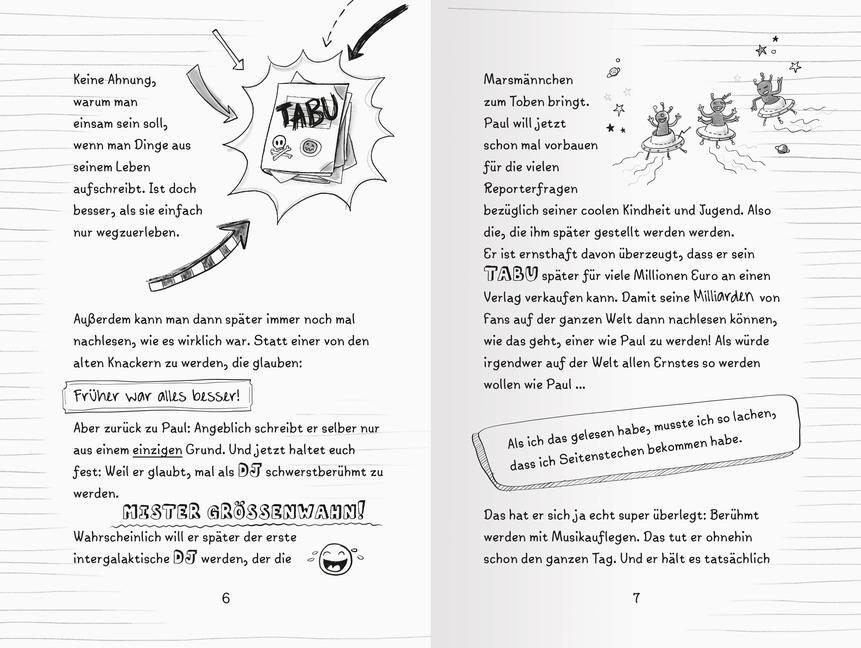 Keine Ahnung,
warum man
einsam sein soll,
wenn man Dinge aus
seinem Leben
aufschreibt. Ist doch
besser, als sie einfach
nur wegzuerleben.
TABU
Außerdem kann man dann später immer noch mal
nachlesen, wie es wirklich war. Statt einer von den
alten Knackern zu werden, die glauben:
Früher war alles besser!
Aber zurück zu Paul: Angeblich schreibt er selber nur
aus einem einzigen Grund. Und jetzt haltet euch
fest: Weil er glaubt, mal als DJ schwerstberühmt zu
werden.
MISTER GRÖSSENWAHN!
Wahrscheinlich will er später der erste
intergalaktische DJ werden, der die
6
Marsmännchen
zum Toben bringt.
Paul will jetzt
schon mal vorbauen
für die vielen
Reporterfragen
bezüglich seiner coolen Kindheit und Jugend. Also
die, die ihm später gestellt werden werden.
Er ist ernsthaft davon überzeugt, dass er sein
TABU später für viele Millionen Euro an einen
Verlag verkaufen kann. Damit seine Milliarden von
Fans auf der ganzen Welt dann nachlesen können,
wie das geht, einer wie Paul zu werden! Als würde
irgendwer auf der Welt allen Ernstes so werden
wollen wie Paul ...
Als ich das gelesen habe, musste ich so lachen,
dass ich Seitenstechen bekommen habe.
Das hat er sich ja echt super überlegt: Berühmt
werden mit Musikauflegen. Das tut er ohnehin
schon den ganzen Tag. Und er hält es tatsächlich
7